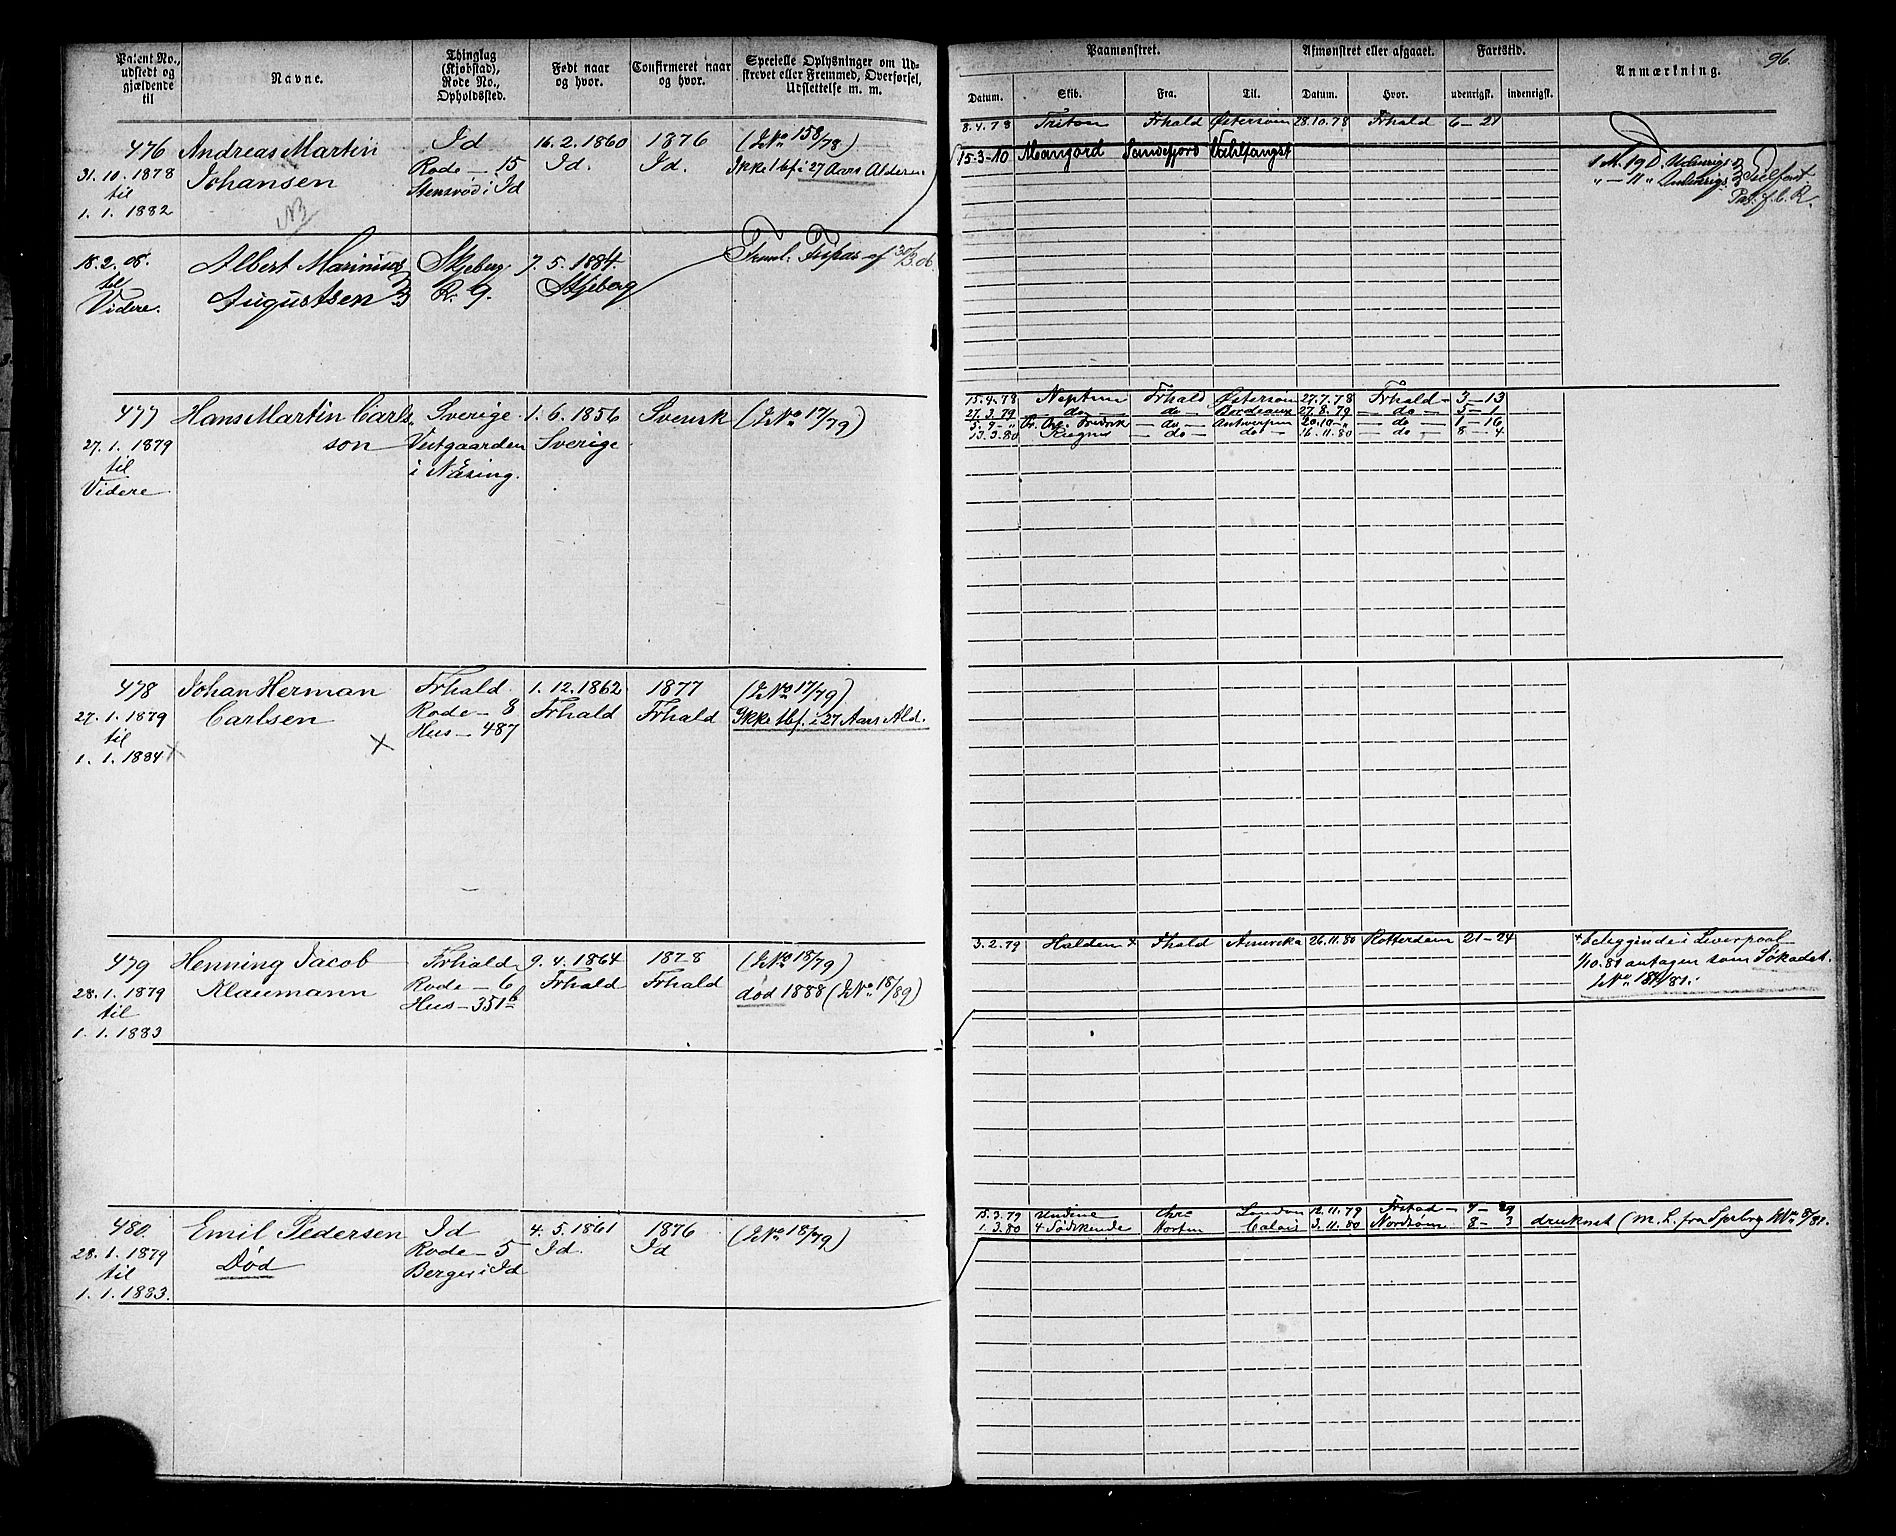 Patent No., udstedt og gjældende til
Navne.
Thinglag (Kjøbstad), Rode No., Opholdssted.
Født naar og hvor.
Confirmeret naar og hvor.
Specielle Oplysninger om Udskrevet eller Fremmed, Overførsel, Udslettelse m. m.
Paamønstret.
Afmønstret eller afgaaet.
Fartstid.
Anmærkning.
96.
Datum.
Skib.
Fra.
Til.
Datum.
Hvor.
udenrigsk.
indenrigsk.
476
31.10.1878
til
1.1.1882
Andreas Martin
Johansen
NB
Id
Rode — 15
Stensrød i Id
16.2.1860
Id.
1876
Id.
(J.No 158/78)
Ikke tbf. i 27 Aars Alderen
8.4.78 Triton Frhald Østersøen 28.10.78 Frhald 6 — 21
15-3-10 Mangord Sandefjord Hvalfangst
18.2.05.
til
Videre.
Albert Marinius
Augustsen
Skjeberg
R. 9.
7.5.1884.
Skjeberg
477
27.1.1879
til
Videre
Hans Martin Carls
son
Sverige
Vestgaarden
i Næsing.
1.6.1856
Sverige
Svensk
(J.No 17/79)
15.4.78 Neptun Frhald Østersøen 27.7.78 Frhald 3 — 13
27.3.79 — do — — do — Bordeaux 27.8.79 — do — 5 — 1
5.9 — " — do — Antwerpen 20.10 — " — do — 1 — 16
13.3.80 — do — — do — 16.11.80 — do — 8 — 4
478
27.1.1879
til
1.1.1884
Johan Herman
Carlsen
Frhald.
Rode — 8
Hus — 487
1.12.1862
Frhald
1877
Frhald
(J.No 17/79)
Ikke tbf. i 27 Aars Ald.
479
28.1.1879
til
1.1.1883
Henning Jacob
Klaumann
Frhald
Rode — 6
Hus — 351b
9.4.1864
Frhald
1878
Frhald
(J.No 18/79)
død 1888 (J.No 18/89)
3.2.79 Halden + Fhald Amerika 26.11.80 Rotterdam 21 — 24
+ beliggende i Liverpool
1/10.80 antagen som
480
28.1.1879
til
1.1.1883.
Emil Pedersen
Død
Id
Rode — 5
Berger i Id
4.5.1861
Id.
1876
Id
(J.No 18/79)
15.3.79 Undine Chra London 12.11.79 Frstad 7 — 29
1.3.80 4 Sødskende Horten Calais 3.11.80 Nordsøen 8 — 3 druknet